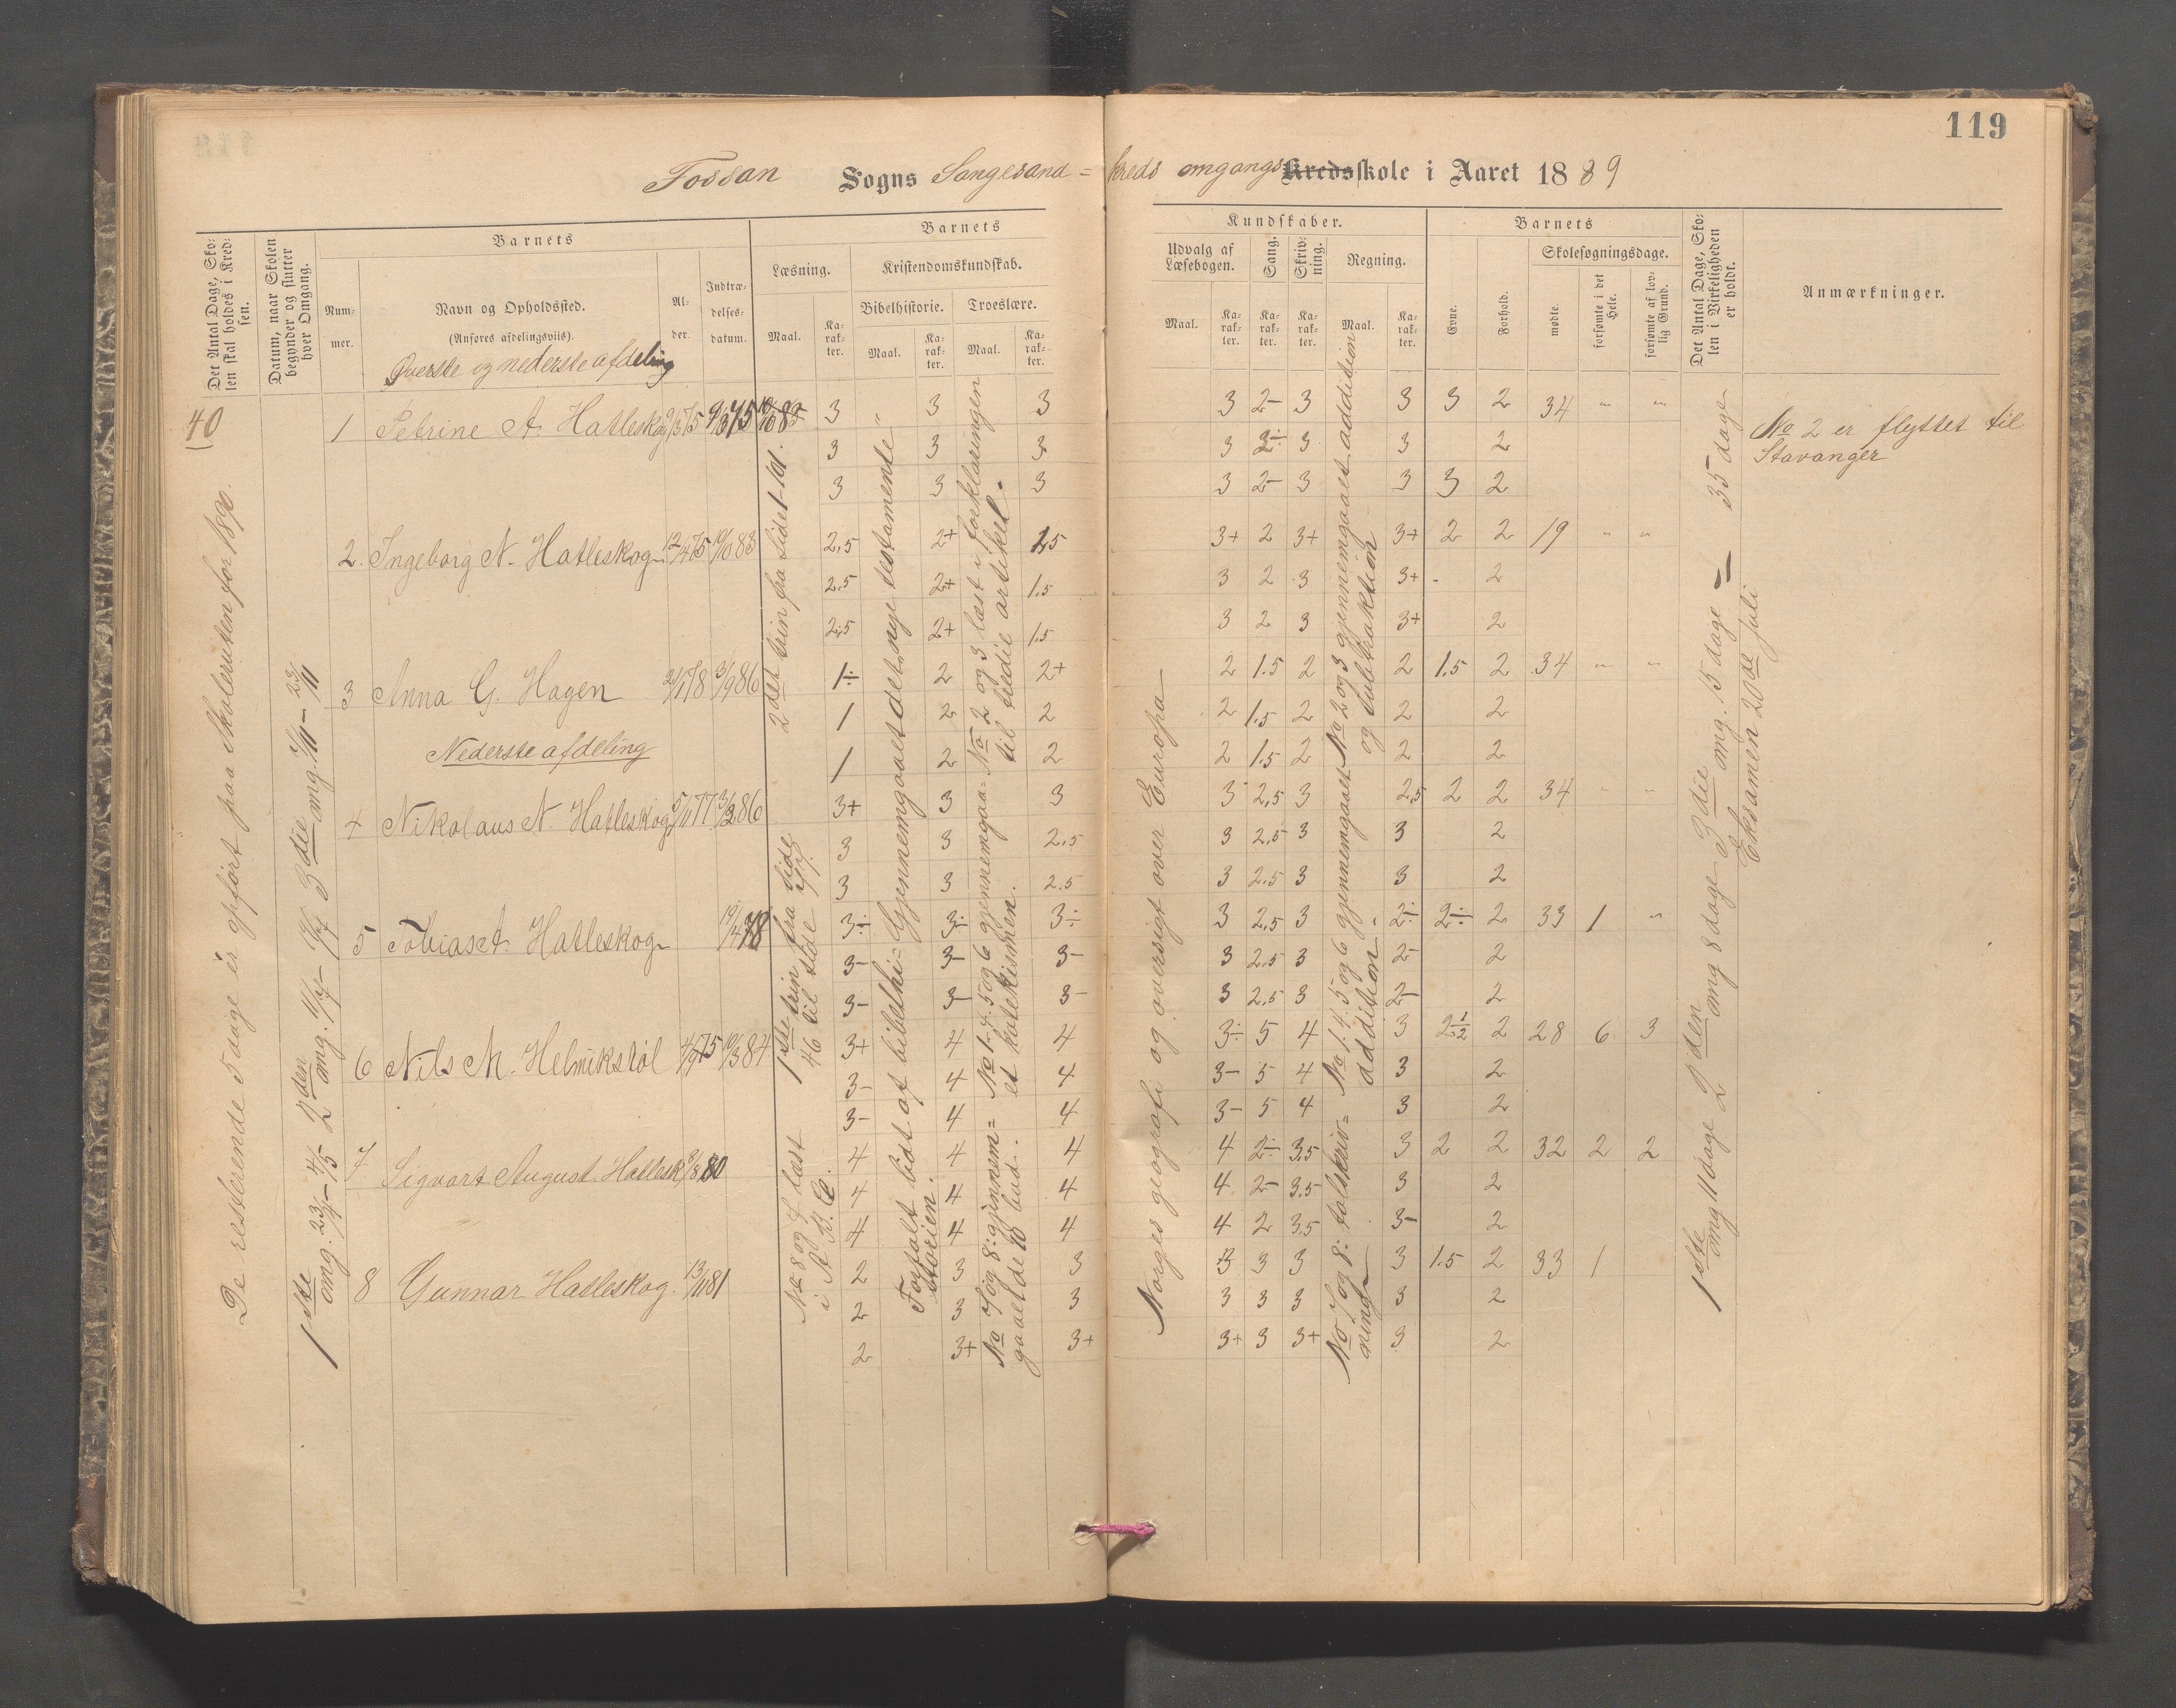 119
Fossan Sogns Songesand = kreds omgangs Kredsskole i Aaret 1889
Det Antal Dage, Skolen skal holdes i Kredsen.
Datum, naar Skolen begynder og slutter hver Omgang.
Barnets
Nummer.
Navn og Opholdssted.
(Anføres afdelingsviis).
Øverste og nederste afdeling
Alder.
Indtrædelsesdatum.
Barnets
Læsning.
Maal.
Karakter.
Kristendomskundskab.
Bibelhistorie.
Maal.
Karakter.
Troeslære.
Maal.
Karakter.
Kundskaber.
Udvalg af Læsebogen.
Maal.
Karakter.
Sang.
Karakter.
Skrivning.
Karakter.
Regning.
Maal.
Karakter.
Barnets
Evne.
Forhold.
Skolesøgningsdage.
mødte
forsømte i det Hele.
forsømte af lovlig Grund.
Det Antal Dage, Skolen i Virkeligheden er holdt.
Anmærkninger.
40
De resterende 5 dage er opført paa Skoleruten for 1890.
1ste omg. 23/4 – 4/5 2den omg. 11/7 – 3die omg. 7/11 – 23/11
1 Petrine A. Hatleskog 3 " 3 3 3 2- 3 3 3 2 34 " "
3 3 3 3 3 3 2
3 3 3 3 2- 3 3 3 2
2. Ingeborg N. Hatleskog 12/4 75 10/10 83 2,5 2+ 3+ 2 3+ 3+ 2 2 19 " "
2.5 2+ 1.5 3 2 3 3+ - 2
2,5 2+ 1.5 3 2 3 3+ 2
3 Anna G. Hagen 3/9 86 1÷ 2 2+ 2 1.5 2 2 1.5 2 34 " "
1 2 2 2 1.5 2 2 2
Nederste afdeling
1 2 2 2 1.5 2 2 2
4 Nikolaus N. Hatleskog 5/11 77 3+ 3 3 3 2,5 3 2,5 2 2 34 " "
3 3 2.5 3 2.5 3 3 2
3 3 2.5 3 2.5 3 3 2
5 Tobias A. Hatleskog 19/4 78 3÷ 3÷ 3÷ 3 2,5 3 2÷ 2÷ 2 33 1 "
3- 3- 3- 3 2.5 3 2- 2
3- 3- 3- 3 2.5 3 2- 2
6 Nils M. Helmikstøl 4/9 75 10/3 84 3+ 4 4 3÷ 5 4 3 2 1/2 2 28 6 3
3- 4 4 3- 5 4 3 2
3- 4 4 3- 5 4 3 2
7 Sigvart August Hatlesk 8/8 80 4 4 4 4 2÷ 3,5 3 2 2 32 2 2
4 4 4 4 2- 3.5 3 2
4 4 4 4 2 3.5 3- 2
8 Gunnar Hatleskog. 13/11 81 2 3 3 3 3 3 3 1.5 2 33 1
2 3 3 3 3 3 3 2
2 3+ 3+ 3+ 3 3+ 3 2
2det trin fra side 1-101.
1ste trin fra side
46 til side
No 8 og 7 læst
i A.B.C.
Gjennemgaaet det nye testamente
Fortalt lidt af bibelhi=
storien.
No 2 og 3 læst i forklaringen
til tredie artikel.
No 1. 4. 5 og 6 gjennemgaa=
et katekismen.
No 7 og 8: gjennem=
gaaet de 10 bud.
Norges geografi og oversigt over Europa
No 2 og 3 gjennemgaaet addition
og subtraktion
No 1. 4. 5 og 6 gjennemgaaet
addition.
No 7 og 8: talskriv=
ning
1ste omg 11 dage 2den omg 8 dage 3die omg. 15 dage = 35 dage
Eksamen 20de juli
No 2 er flyttet til
Stavanger